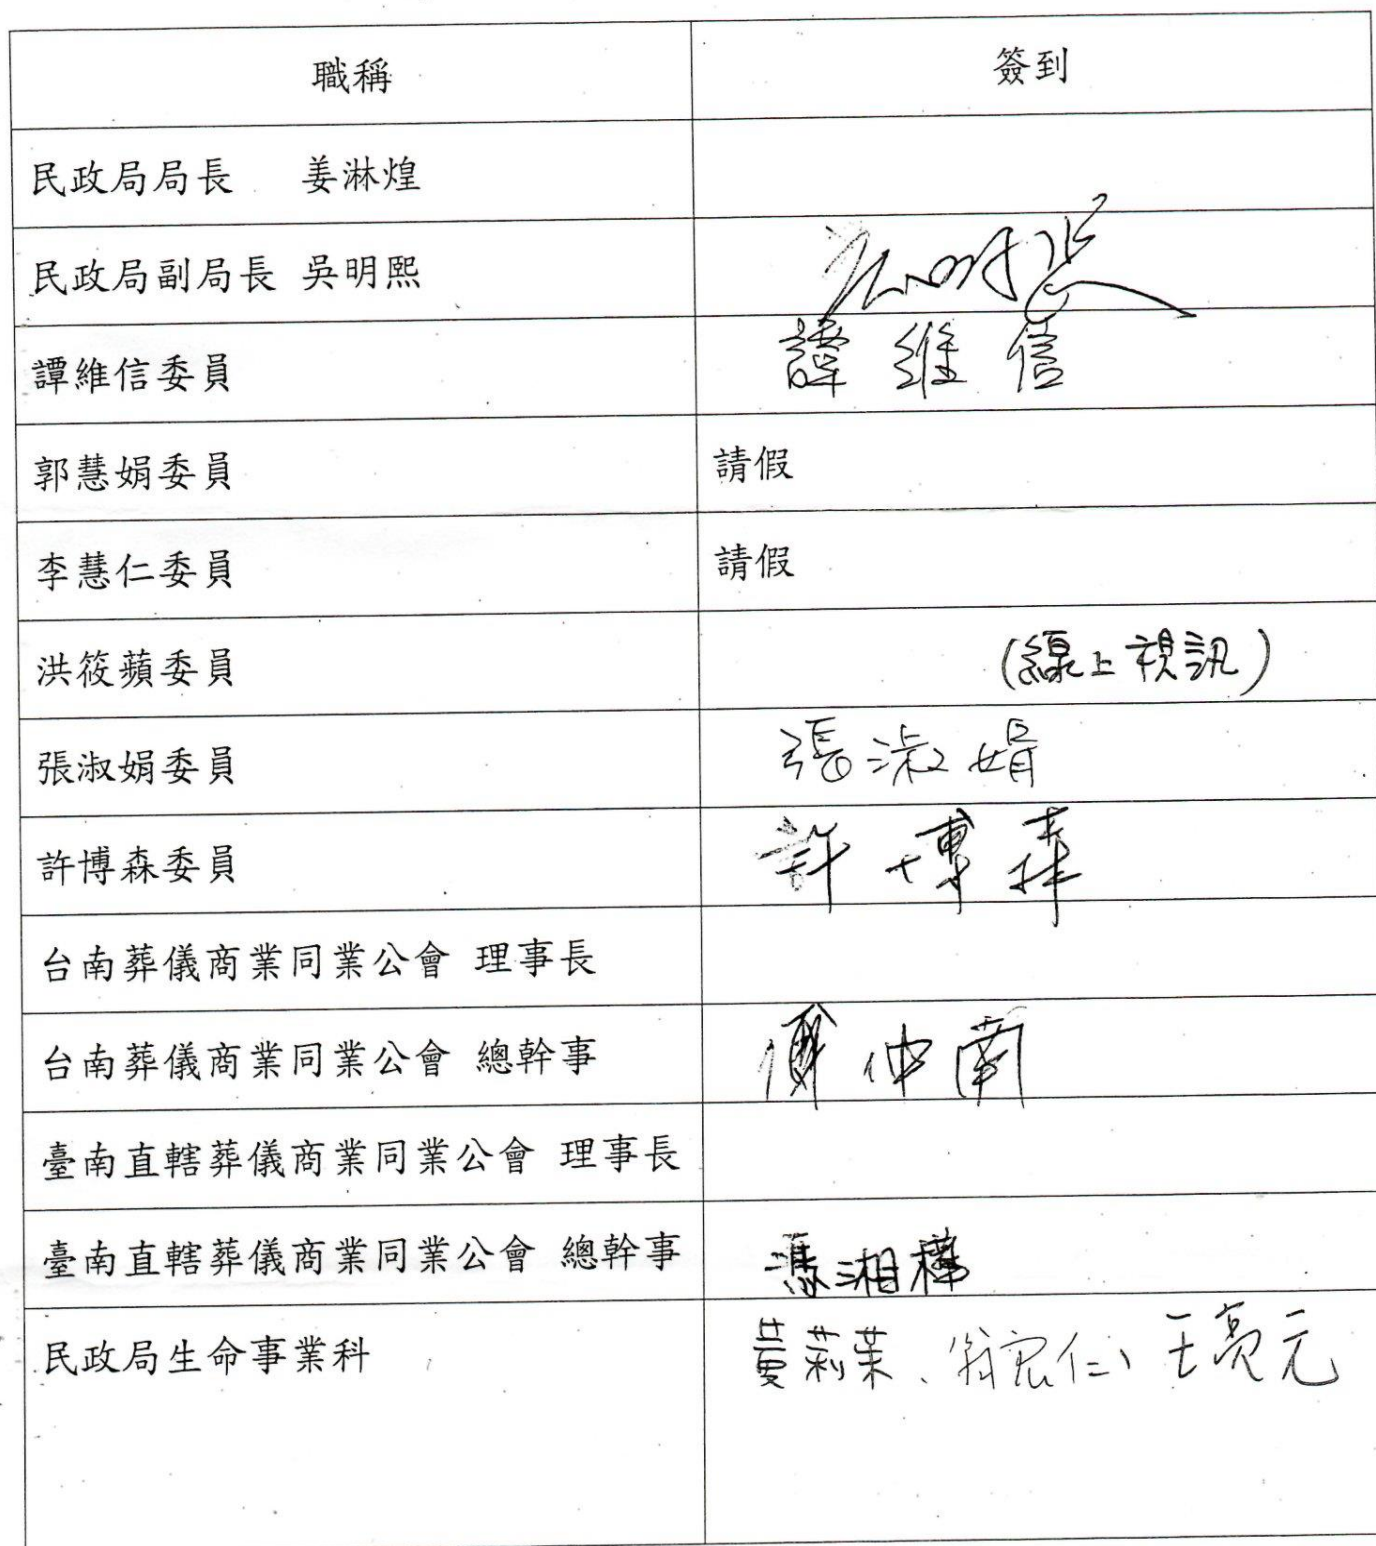 職稱 簽到
民政局局長 姜淋煌
民政局副局長 吳明熙 吳明熙
譚維信委員 譚維信
郭慧娟委員 請假
李慧仁委員 請假
洪筱蘋委員 (線上視訊)
張淑娟委員 張淑娟
許博森委員 許博森
台南葬儀商業同業公會 理事長
台南葬儀商業同業公會 總幹事 仲南
臺南直轄葬儀商業同業公會 理事長
臺南直轄葬儀商業同業公會 總幹事 馮湘樺
民政局生命事業科 黃莉茱、翁宏仁、王亮元